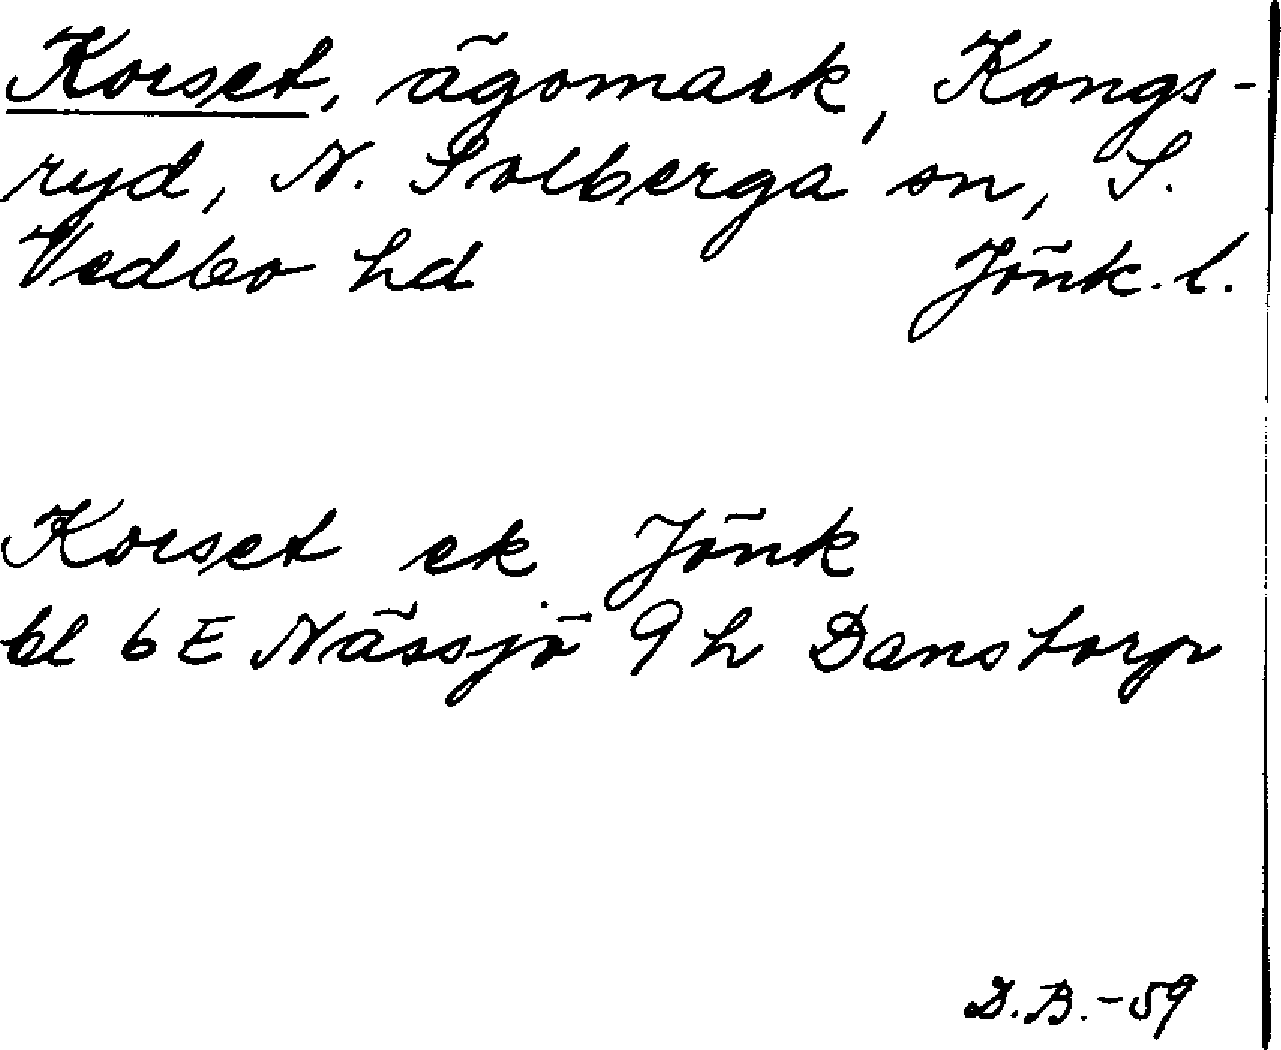 Korset, ägomark, Kongs-
ryd, N. Solberga sn, S.
Vedbo hd Jönk. l.
Korset ek Jönk
bl 6 E Nässjö 9 h Danstorp
D.B.-59